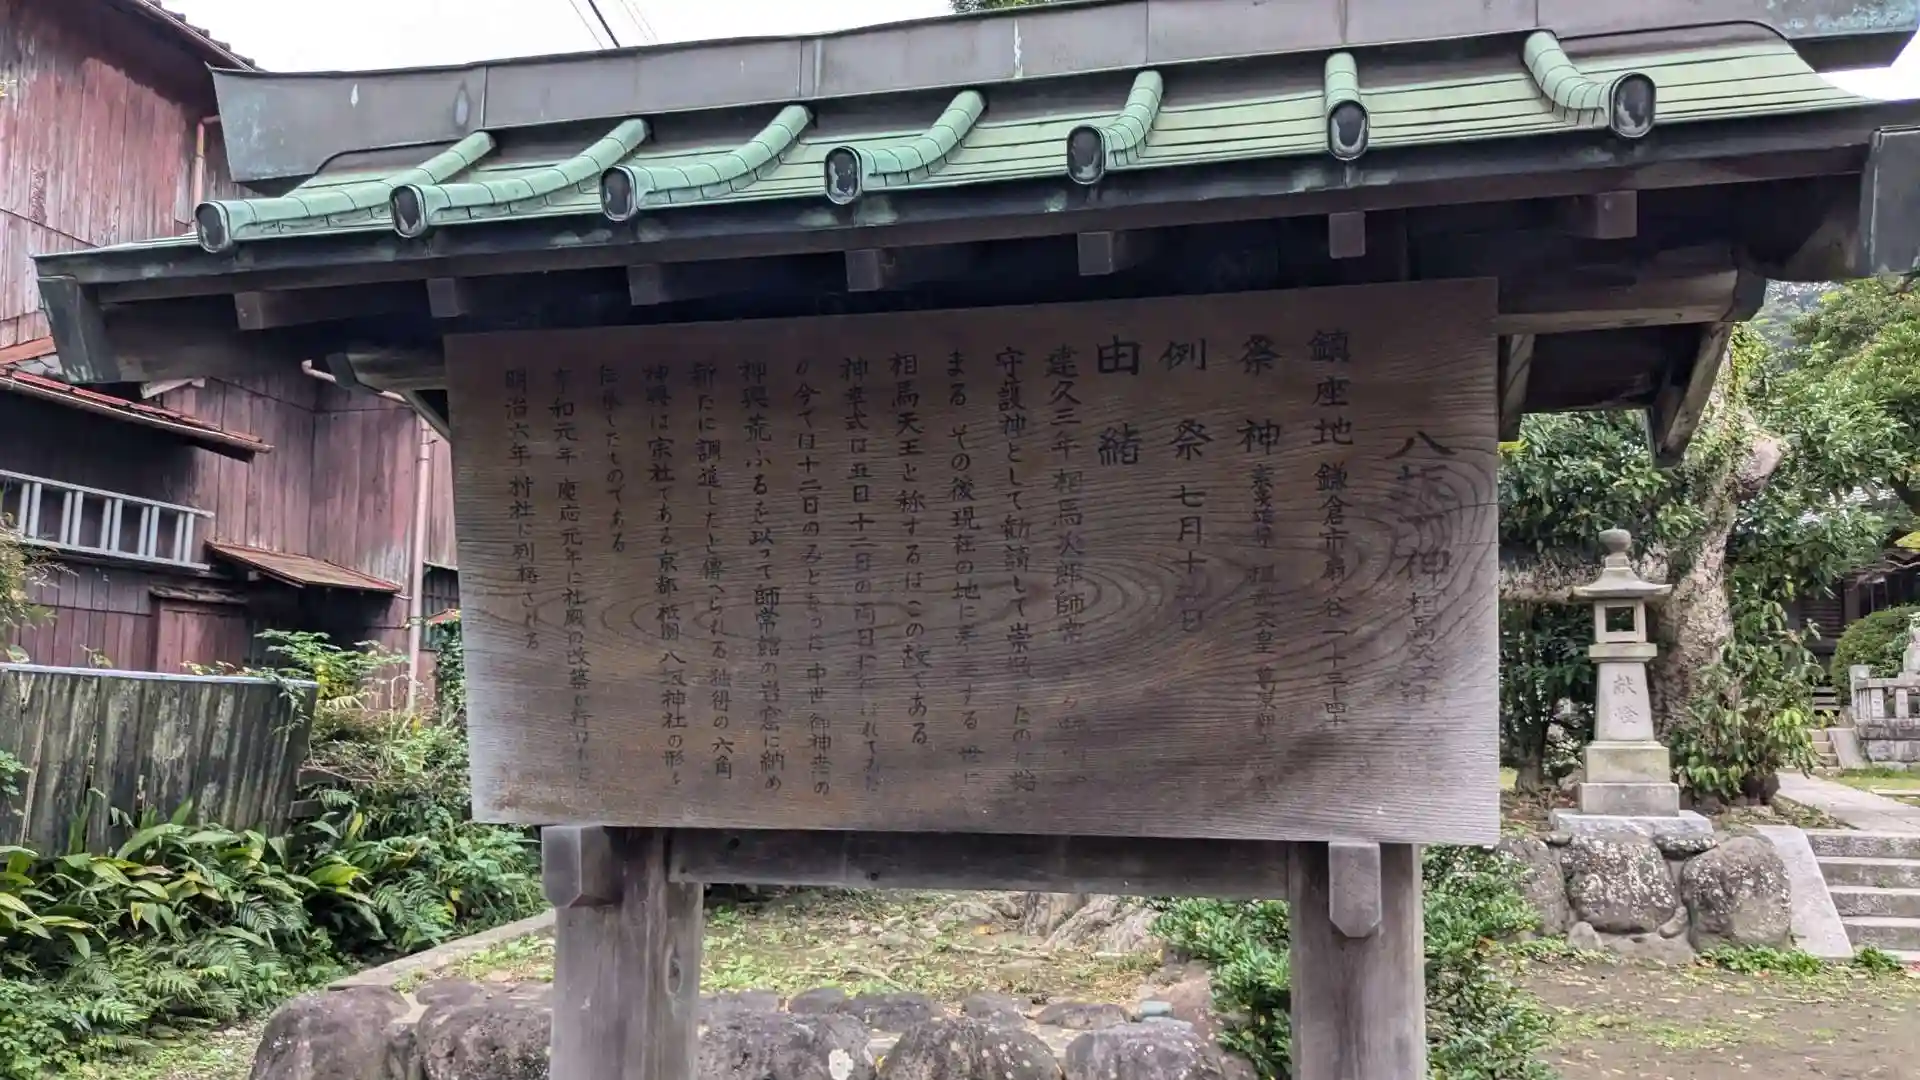 八坂神 相馬天王
鎮座地 鎌倉市扇ヶ谷一ー十三ー四十
祭神 素戔雄尊 桓武天皇 葛原親王
例祭 七月十 日
由緒
建久三年相馬次郎師常
守護神として勧請して崇敬 たのに始
まる その後現在の地に奉 する 世に
相馬天王と称するはこの故である
神幸式は五日十二日の両日 れてゐた
が今では十二日のみとなった 中世御神幸の
神輿荒ぶるを以って師常館の岩窟に納め
新たに調進したと傳へられる独得の六角
神輿は宗社である京都祗園八坂神社の形を
伝承したものである
享和元年 慶応元年に社殿の改築が行はれ
明治六年村社に列格される
献燈